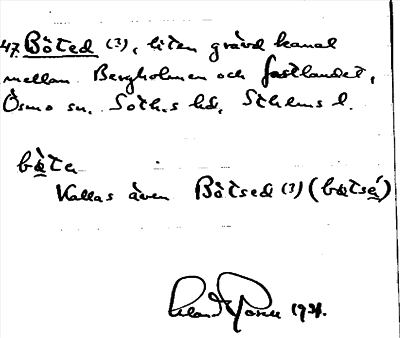 47. Båted (3), liten grävd kanal
mellan Bergholmen och fastlandet,
Ösmo sn. Soth.s hd, Sthlms l.
båte
Kallas även Båtsed (3) (båtsé)
1934.